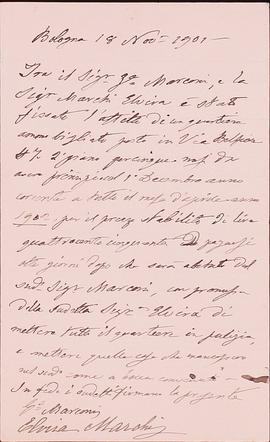 Bologna 18 Nov. 1901
Tra il Sigr Ga Marconi, e la
Sigr Marchi Elvira è stato
fissato l'affitto di un quartiere
ammobigliato posto in Via
N 2° piano per cinque mesi da
aver principio il 1° Decembre anno
corrente a tutto il mese d'aprile anno
1902 per il prezzo stabilito di lire
quattrocento cinquanta Da pagarsi
otto giorni dopo che sarà abitato dal
sud. Sigr Marconi, con promessa
della sudetta Sigr Elvira di
mettere tutto il quartiere in pulizia,
e mettere quelle cose che mancassero
nel sud. come a bocca
In fede i sudetti firmano la presente
Ga Marconi
Elvira Marchi